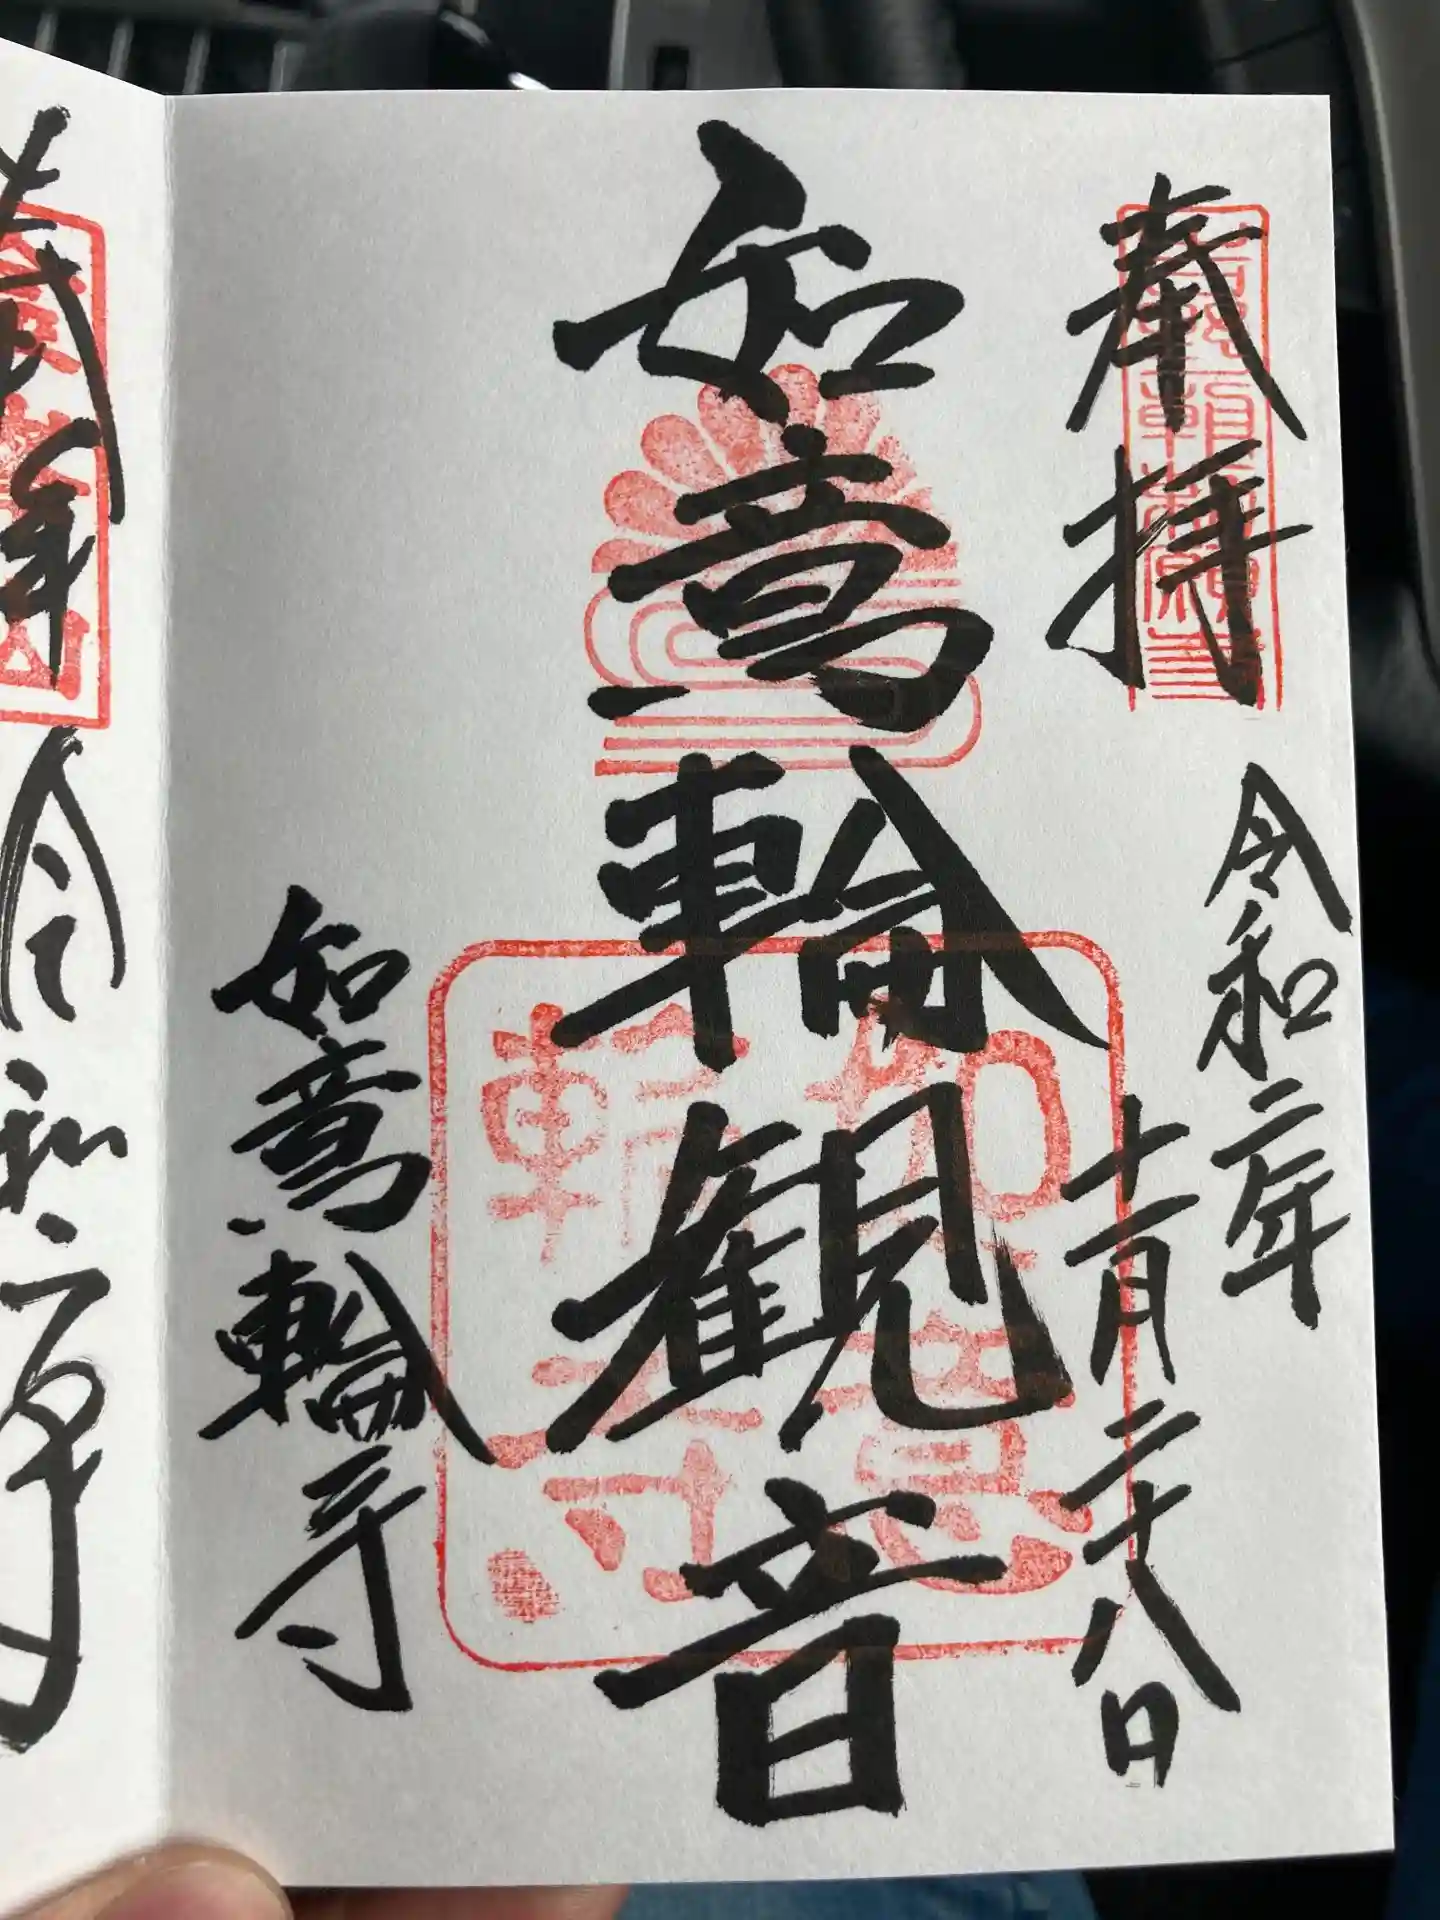 奉拝
令和二年
十一月二十八日
如意輪観音
如意輪寺
令和二年